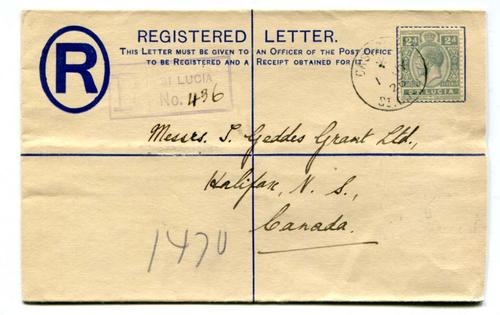 REGISTERED LETTER.
THIS LETTER MUST BE GIVEN TO AN OFFICER OF THE POST OFFICE
TO BE REGISTERED AND A RECEIPT OBTAINED FOR IT.
R
2d 2d
ST. LUCIA
ST LUCIA
No. 436
Messrs. T. Geddes Grant Ltd.,
Halifax, N. S.,
Canada.
1470